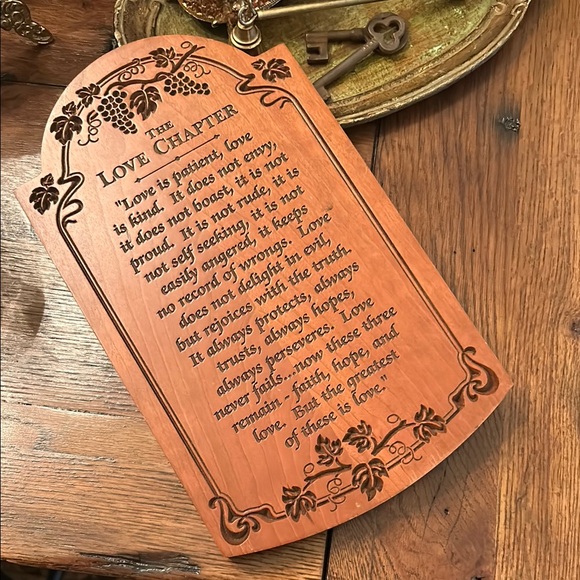 THE
LOVE CHAPTER
"Love is patient, love
is kind. It does not envy,
it does not boast, it is not
proud. It is not rude, it is
not self seeking, it is not
easily angered, it keeps
no record of wrongs. Love
does not delight in evil,
but rejoices with the truth.
It always protects, always
trusts, always hopes,
always perseveres. Love
never fails...now these three
remain - faith, hope, and
love. But the greatest
of these is love."